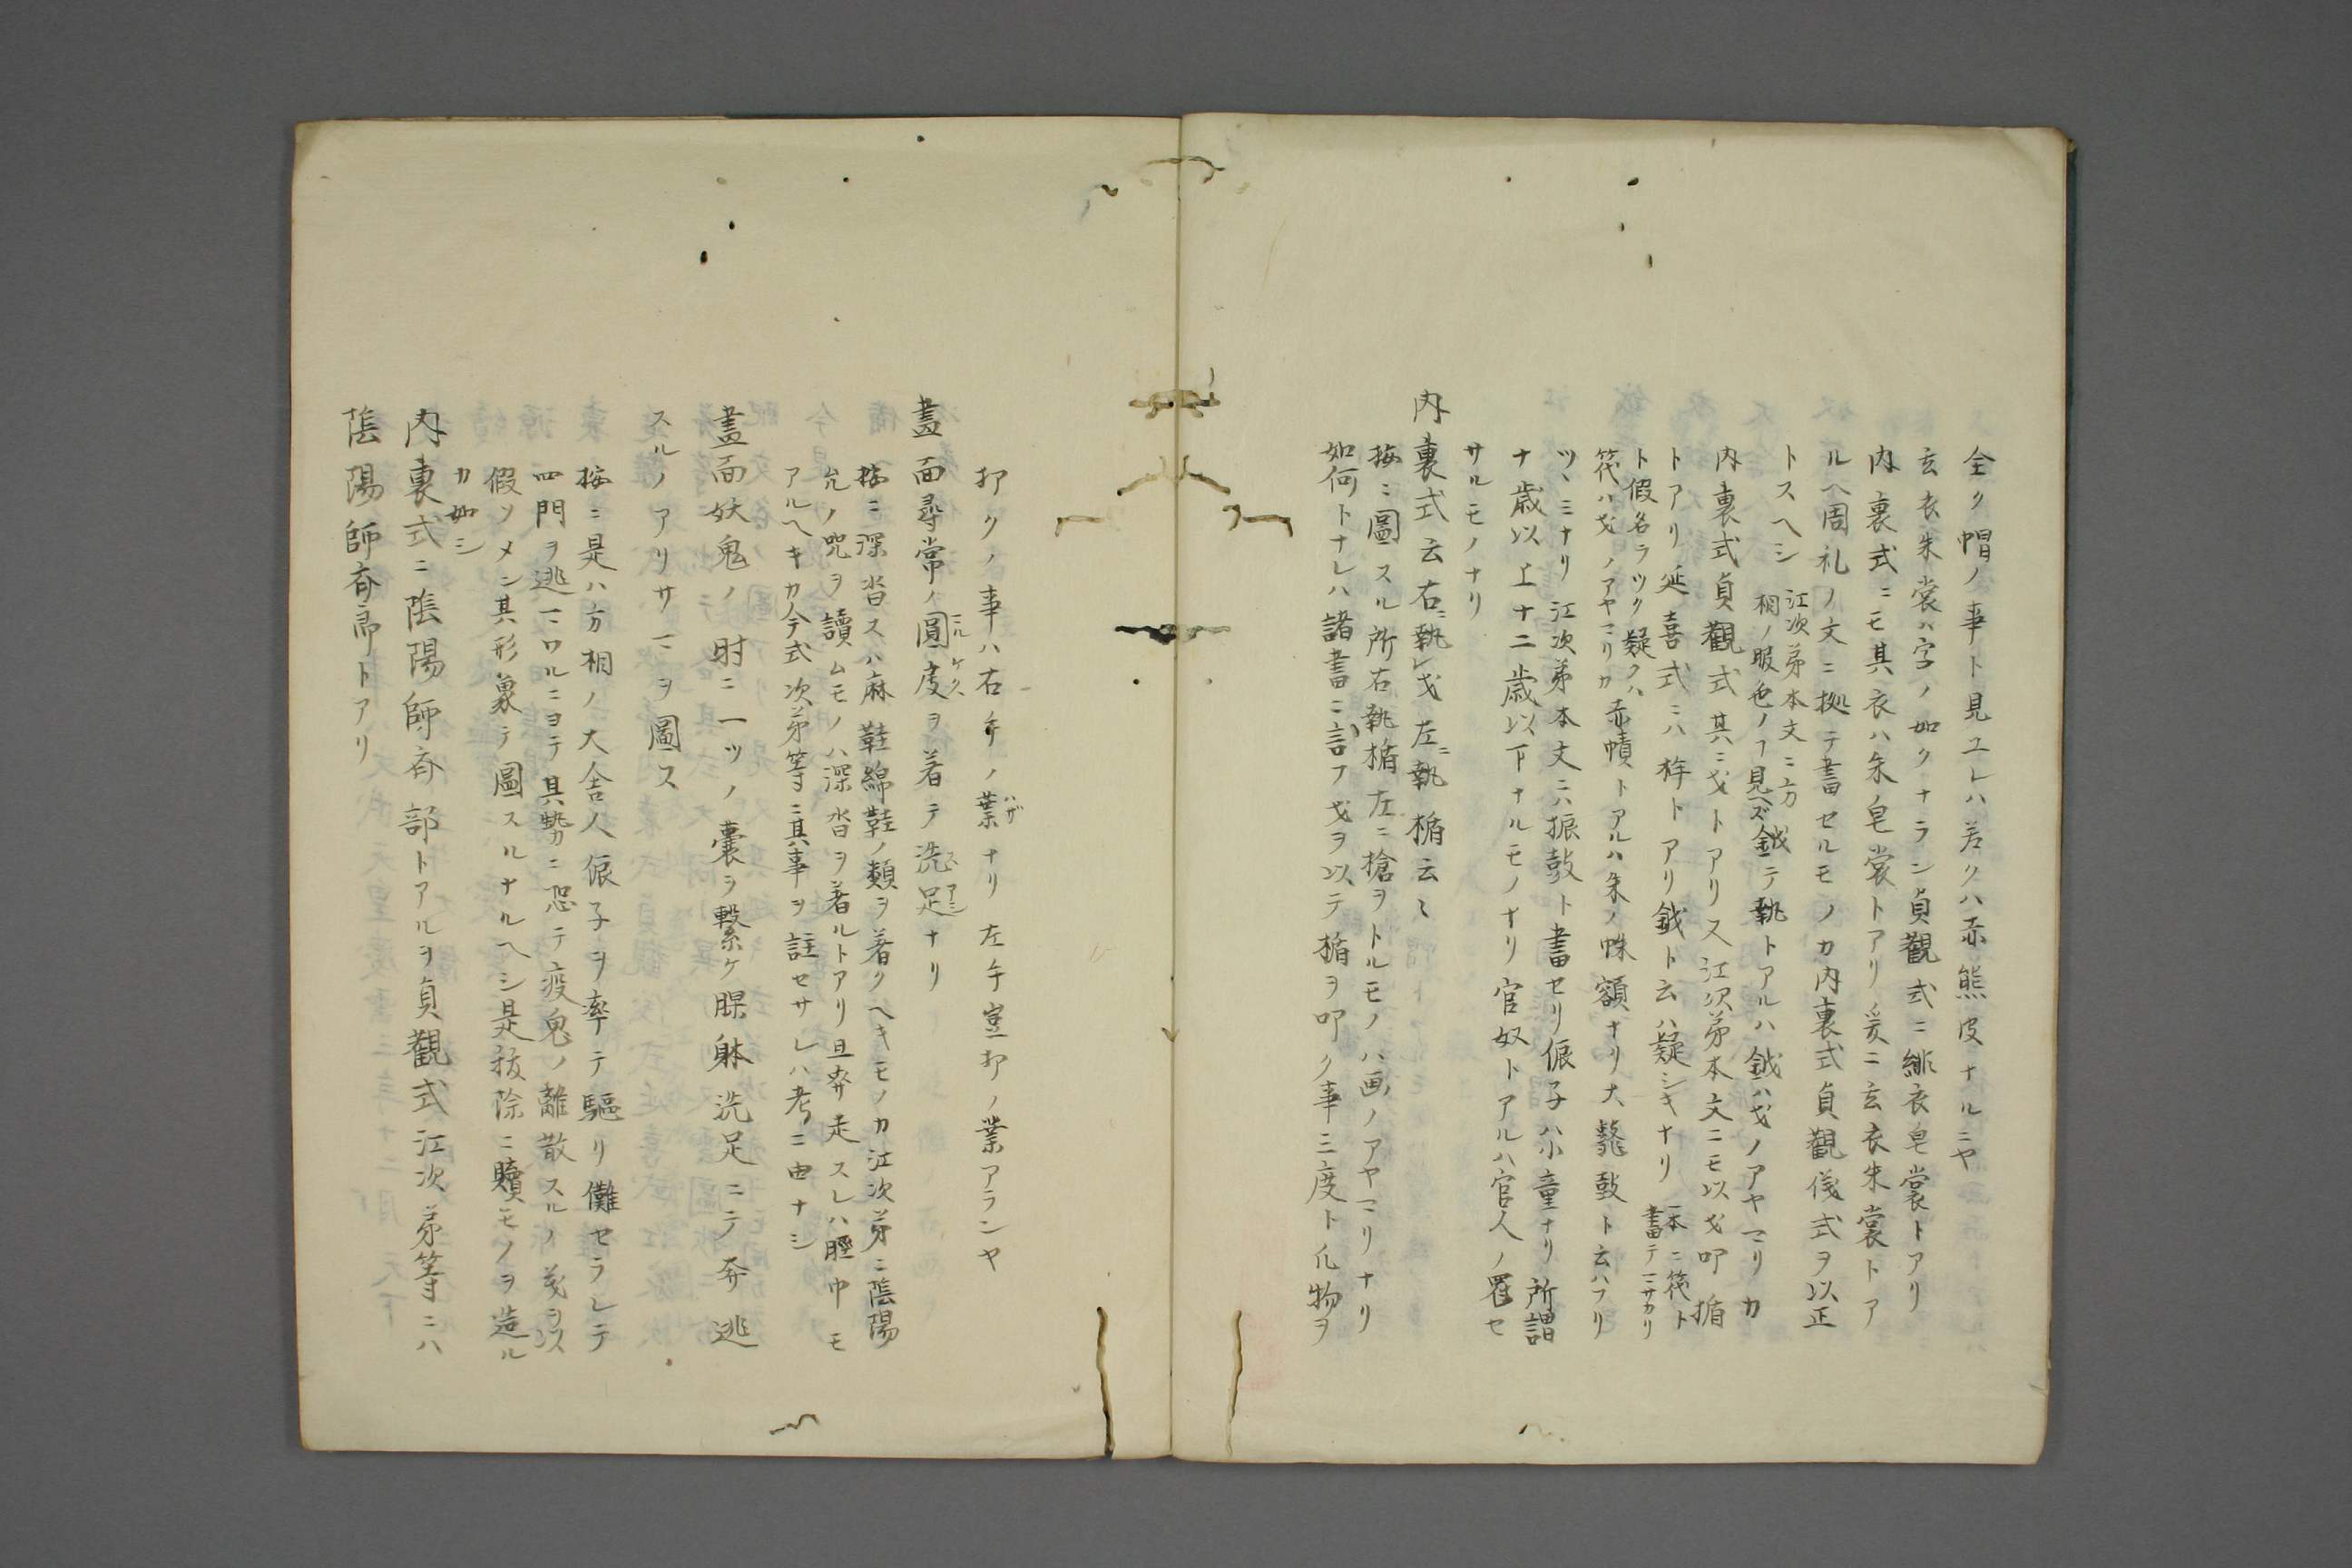 全ク帽ノ事ト見ユレハ若クハ赤熊皮ナルニヤ
玄衣朱裳ハ字ノ如クナラン貞觀式ニ緋衣皂裳トアリ
内裏式ニモ其衣ハ朱ノ皂裳トアリ爰ニ玄衣朱裳トア
ルヘ周礼ノ文ニ拠テ書セルモノカ内裏式貞觀儀式ヲ以正
トスヘシ 江次第本文ニ方相ノ服色ノヿ見ヘズ 鉞テ執トアルハ鉞ハ戈ノアヤマリカ
内裏式貞觀式其ニ戈トアリ又江次第本文ニモ以戈叩楯
トアリ延喜式ニハ桙トアリ鉞ト云ハ疑シキナリ 一本ニ筏ト書テマサカリ
ト假名ラツク疑クハ筏ハ戈ノアヤマリカ 赤幘トアルハ朱ノ帓額ナリ大鼗鼓ト云ハフリ
ツヽミナリ江次第本文ニハ振鼓ト書セリ侲子ハ小童ナリ所謂
十歳以上十二歳以下ナルモノナリ官奴トアルハ官人ノ罷セ
サルモノナリ
内裏式云右ニ執レ戈左ニ執楯云〻
按ニ圖スル所右執楯左ニ槍ヲトルモノハ画ノアヤマリナリ
如何トナレハ諸書ニ言フ戈ヲ以テ楯ヲ叩ク事三度ト凡物ヲ
抑クノ事ハ右手ノ業ナリ左手豈抑ノ業アランヤ
畫面尋常ノ圓皮ヲ着テ洗足ナリ
按ニ深沓スハ麻鞋綿鞋ノ類ヲ着クヘキモノカ江次第ニ陰陽
允ノ咒ヲ讀ムモノハ深沓ヲ着ルトアリ且奔走スレハ脛巾モ
アルヘキカ今式次第等ニ其事ヲ註セサレハ考ニ由ナシ
畫面妖鬼ノ肘ニ一ツノ嚢ラ繫ケ腂躰洗足ニテ奔逃
スルノアリサマヲ圖ス
按ニ是ハ方相ノ大舎人侲子ヲ率テ驅リ儺セラレテ
四門ヲ逃マワルニヨテ其勢ニ恐テ疫鬼ノ離散スルノ義ヲ以
假ソメン其形象テ圖スルナルヘシ是祓除ニ贖モノヲ造ル
カ如シ
内裏式ニ陰陽師斎部トアルヲ貞觀式江次第等ニハ
陰陽師斎郎トアリ